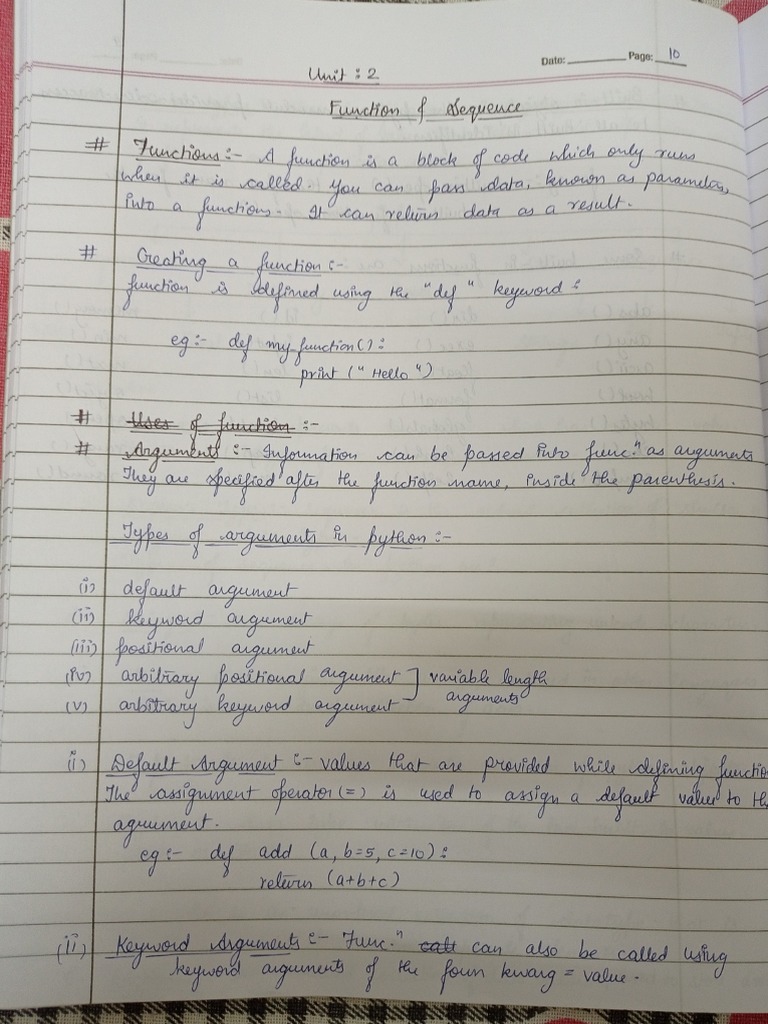 Date: Page: 10
Unit : 2
Function & Sequence
# Functions :- A function is a block of code which only runs
when it is called. You can pass data, known as parameters,
into a functions. It can return data as a result.
# Creating a function :-
function is defined using the "def" keyword :
eg :- def my function() :
print ("Hello")
# Uses of function :-
# Arguments :- Information can be passed into func.ⁿ as arguments
They are specified after the function name, inside the parenthesis.
Types of arguments in python :-
(i) default argument
(ii) keyword argument
(iii) positional argument
(iv) arbitrary positional argument ] variable length
(v) arbitrary keyword argument arguments
(i) Default Argument :- values that are provided while defining functio
The assignment operator (=) is used to assign a default value to th
agrument.
eg :- def add (a, b=5, c=10) :
return (a+b+c)
(ii) Keyword Arguments :- Func.ⁿ call can also be called using
keyword arguments of the form kwarg = value.